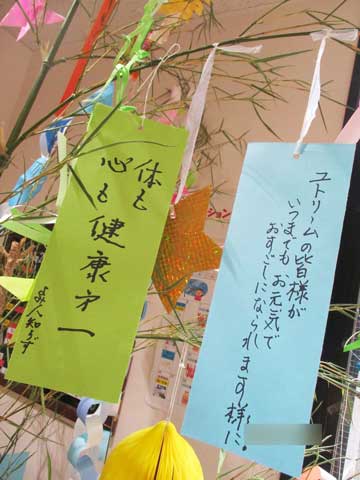 ユトリームの皆様が
いつまでも お元気で
おすごしになられます様に。
体も
心も健康才一
人知らず
ション